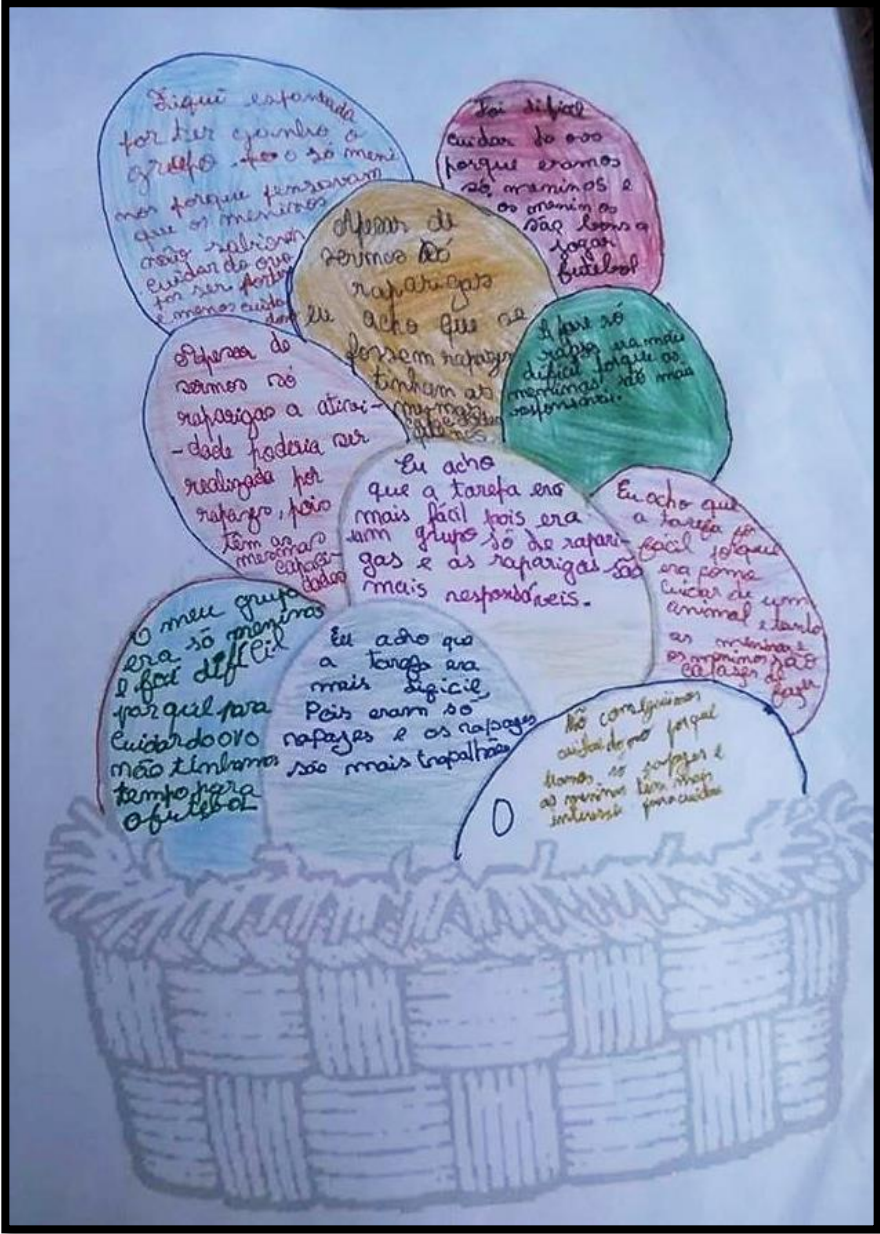 Fiquei espantada
por ter ganho o
grupo só meni
nos porque pensavam
que os meninos
não sabiam
cuidar do ovo
por ser
e menos cuida
dores
Foi difícil
cuidar do ovo
porque eramos
só meninos e
os meninos
são bons a
jogar
futebol
Apesar de
sermos só
raparigas
eu acho que se
fossem rapazes
tinham as
mesmas
A fase só
era mais
difícil porque as
meninas são mais
responsáveis.
Apesar de
sermos só
raparigas a ativi-
-dade poderia ser
realizada por
rapazes, pois
têm as
mesmas
capaci-
dades
Eu acho
que a tarefa era
mais fácil pois era
um grupo só de rapari-
gas e as raparigas são
mais responsáveis.
Eu acho que
a tarefa foi
fácil porque
era como
cuidar de um
animal e tanto
as meninas e
os meninos são
capazes de
fazer
O meu grupo
era só meninos
e foi difícil
porquê para
cuidar do ovo
não tínhamos
tempo para
o futebol
Eu acho que
a tarefa era
mais dificil,
Pois eram só
rapazes e os rapazes
são mais trapalhões
Não conseguimos
cuidar do ovo porque
éramos só rapazes e
as meninas têm mais
interesse para cuidar